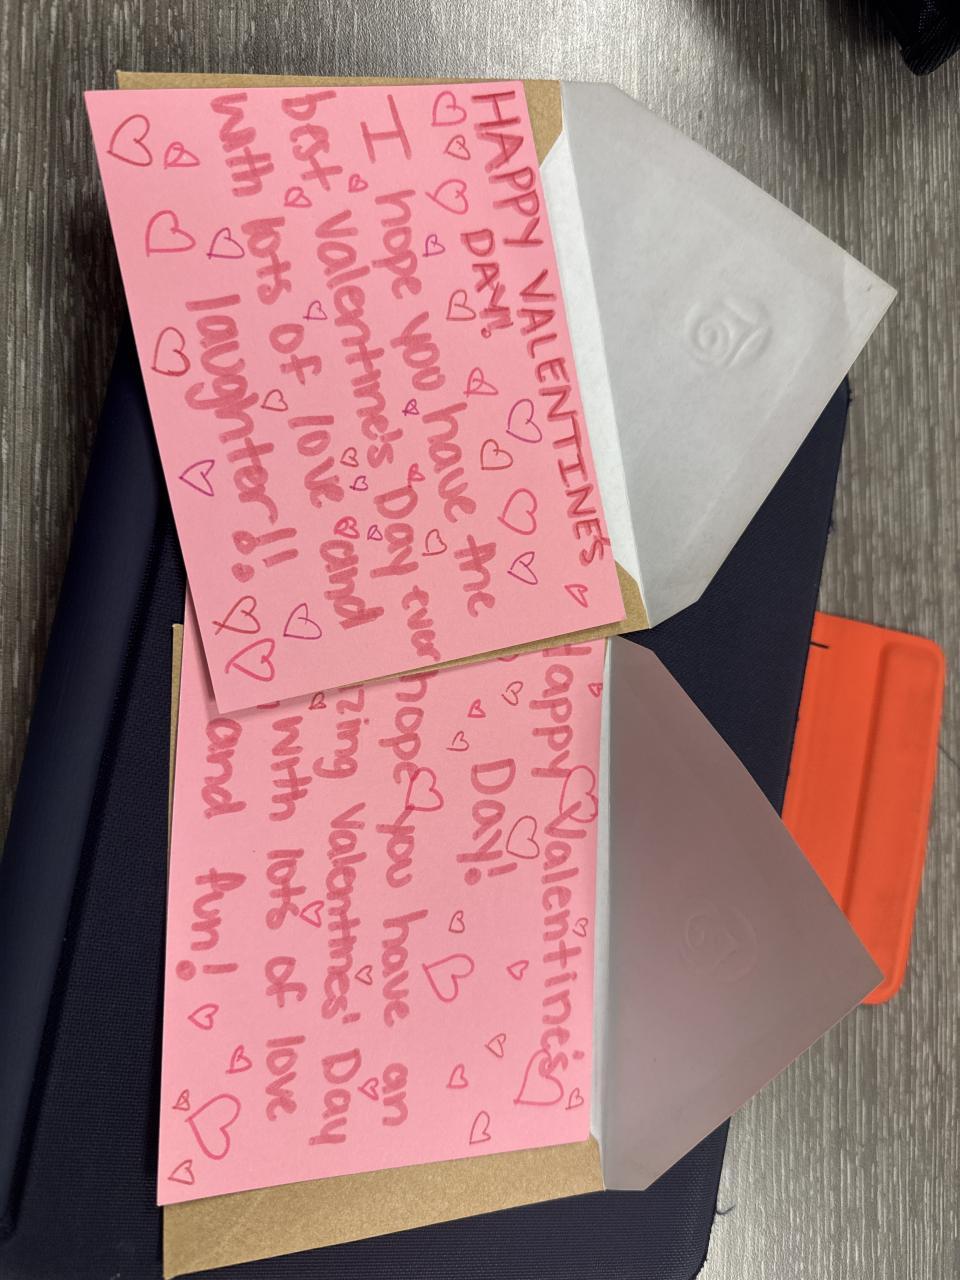 HAPPY VALENTINES
DAY!
I hope you have the
best Valentine's Day ever
with lots of love and
laughter!!
Happy Valentine's
Day!
hope you have an
zing Valentines' Day
with lots of love
and fun!